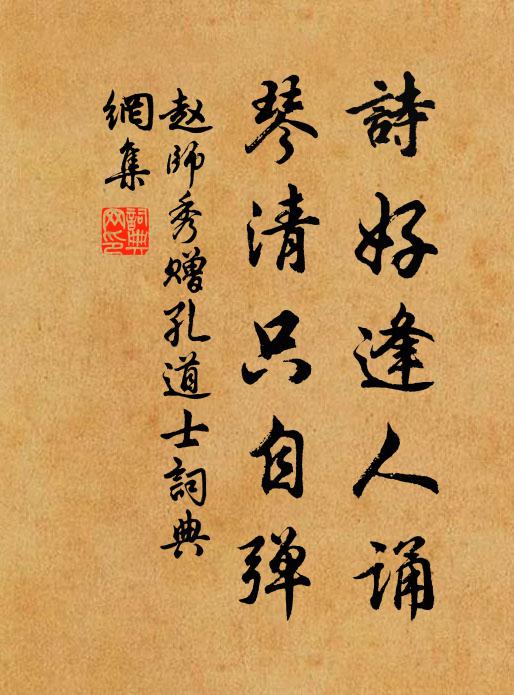 詩好逢人诵
琴清只自弹
赵师秀赠孔道士詞典
網集
詞典
网印